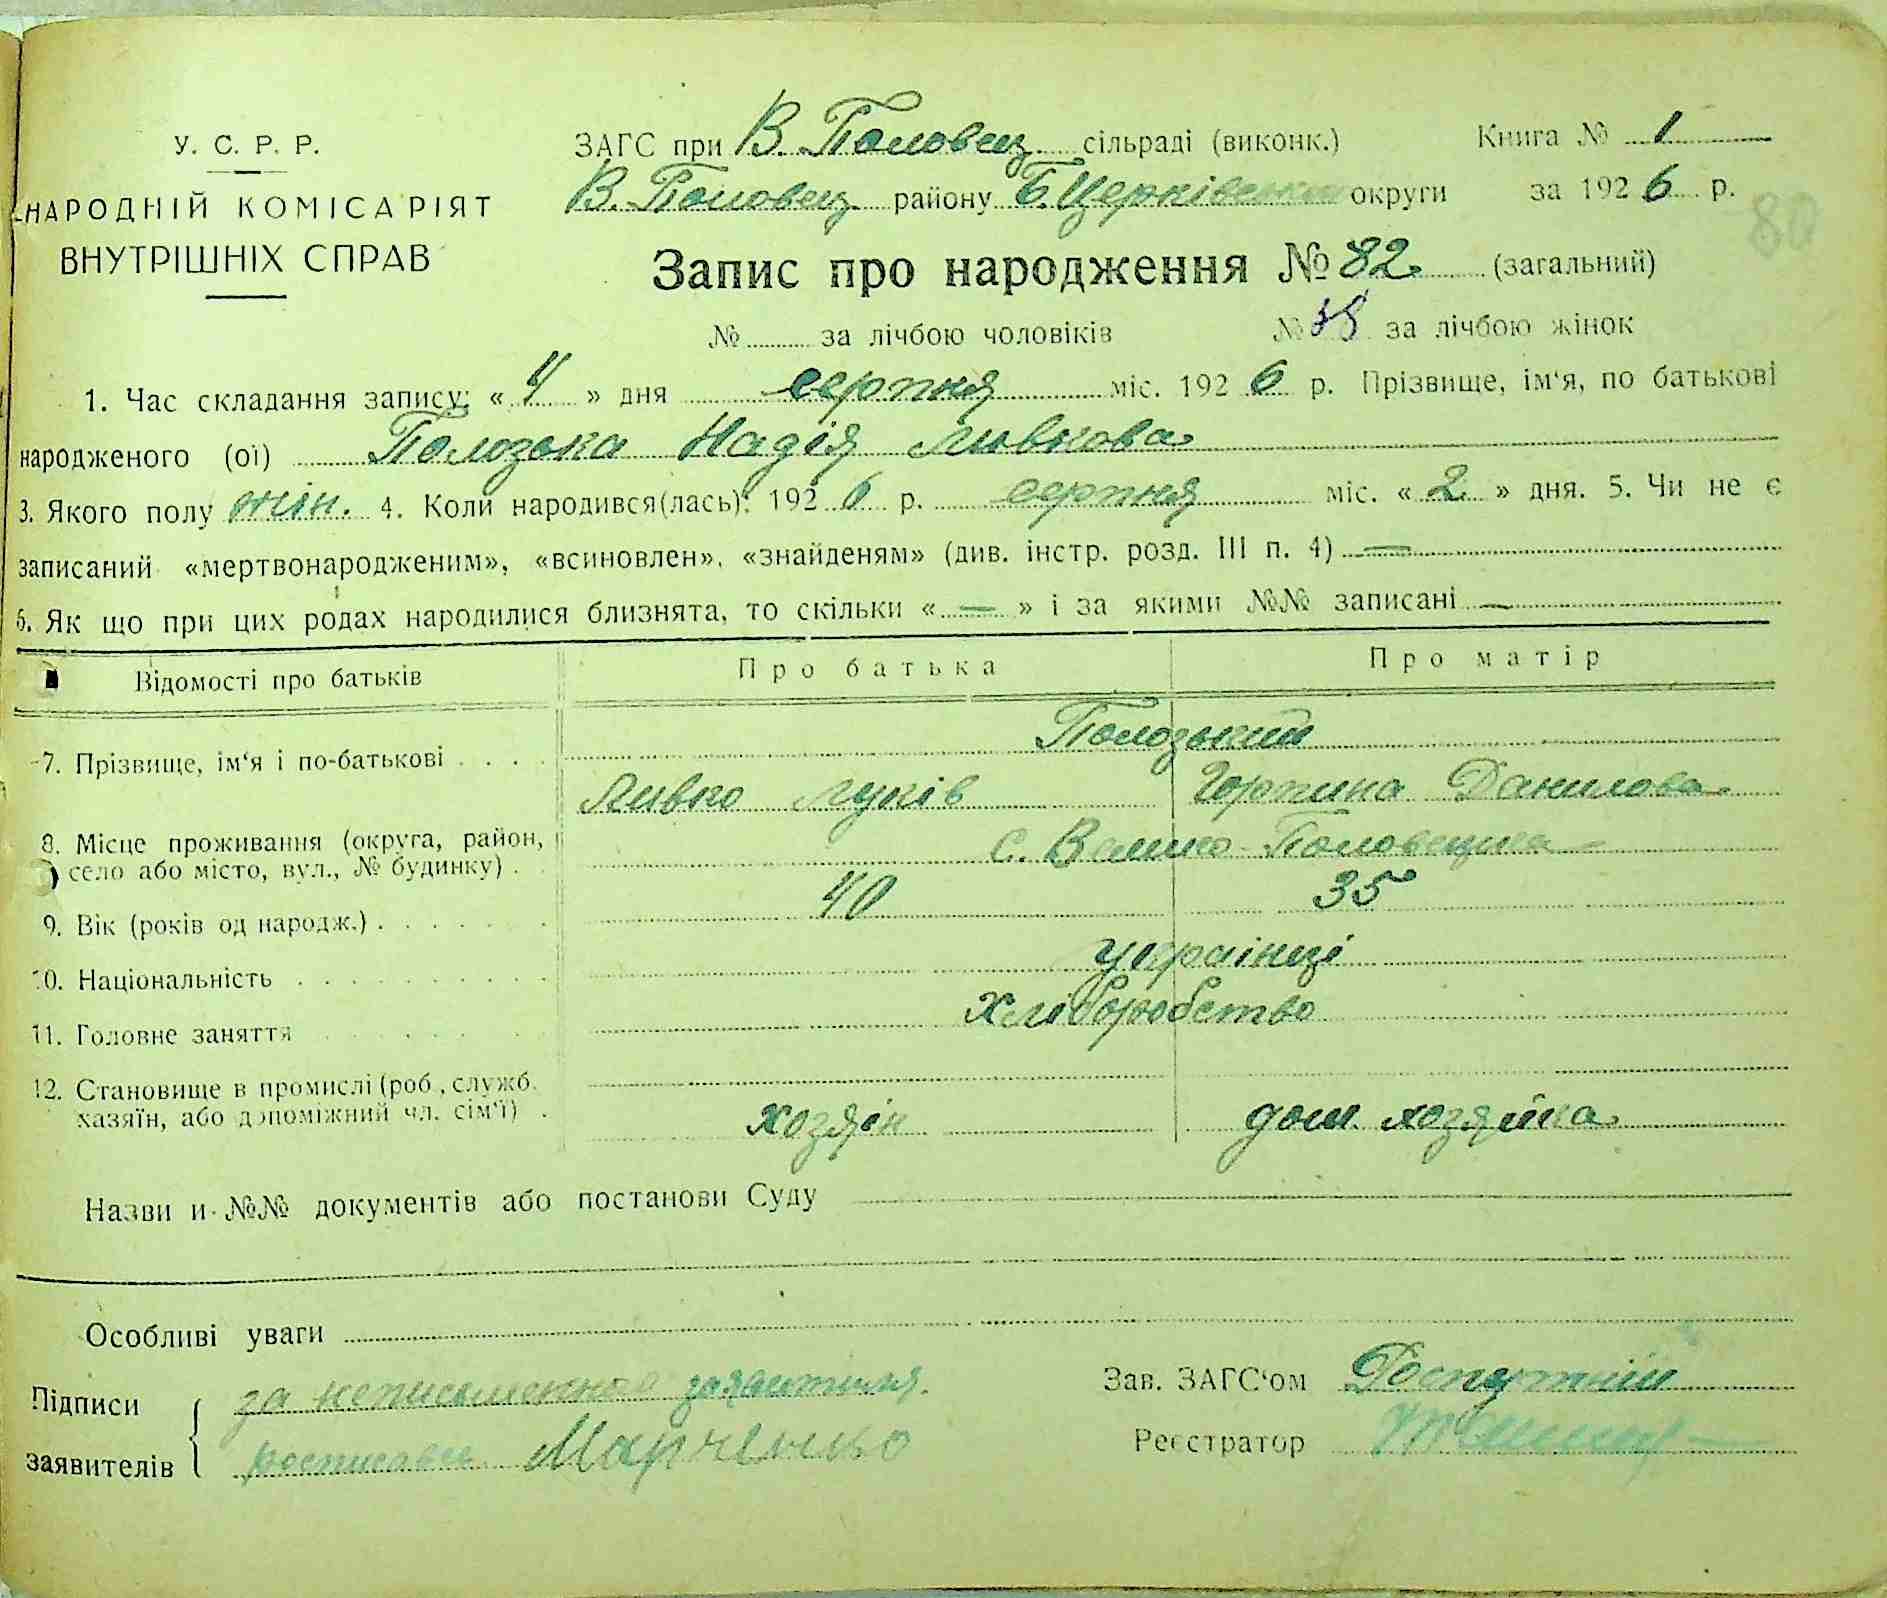 У. С. Р. Р.
НАРОДНІЙ КОМІСАРІЯТ
ВНУТРІШНІХ СПРАВ
ЗАГС при В. Половец сільраді (виконк.) Книга № 1
В. Половец району Б. Церківської округи за 1926 р.
80
Запис про народження № 82 (загальний)
№ за лічбою чоловіків № 38 за лічбою жінок
1. Час складання запису: « 4 » дня серпня міс. 1926 р. Прізвище, ім‘я, по батькові
народженого (ої) Полозька Надія Ливкова
3. Якого полу жін. 4. Коли народився(лась): 1926 р. серпня міс. « 2 » дня. 5. Чи не є
записаний «мертвонародженим», «всиновлен», «знайденям» (див. інстр. розд. III п. 4) —
6. Як що при цих родах народилися близнята, то скільки « — » і за якими №№ записані —
Відомості про батьків Про батька Про матір
7. Прізвище, ім‘я і по-батькові Полозький
Ливко Луків Горпина Данилова
8. Місце проживання (округа, район,
село або місто, вул., № будинку) с. Велико-Половецьке
9. Вік (років од народж.) 40 35
10. Національність українці
11. Головне заняття хліборобство
12. Становище в промислі (роб., служб.
хазяїн, або допоміжний чл. сім‘ї) хозяін дом. хозяйка
Назви и №№ документів або постанови Суду
Особливі уваги
Підписи
заявителів
за неписьменного заявителя
росписався Марченко
Зав. ЗАГС‘ом Роспутній
Реєстратор